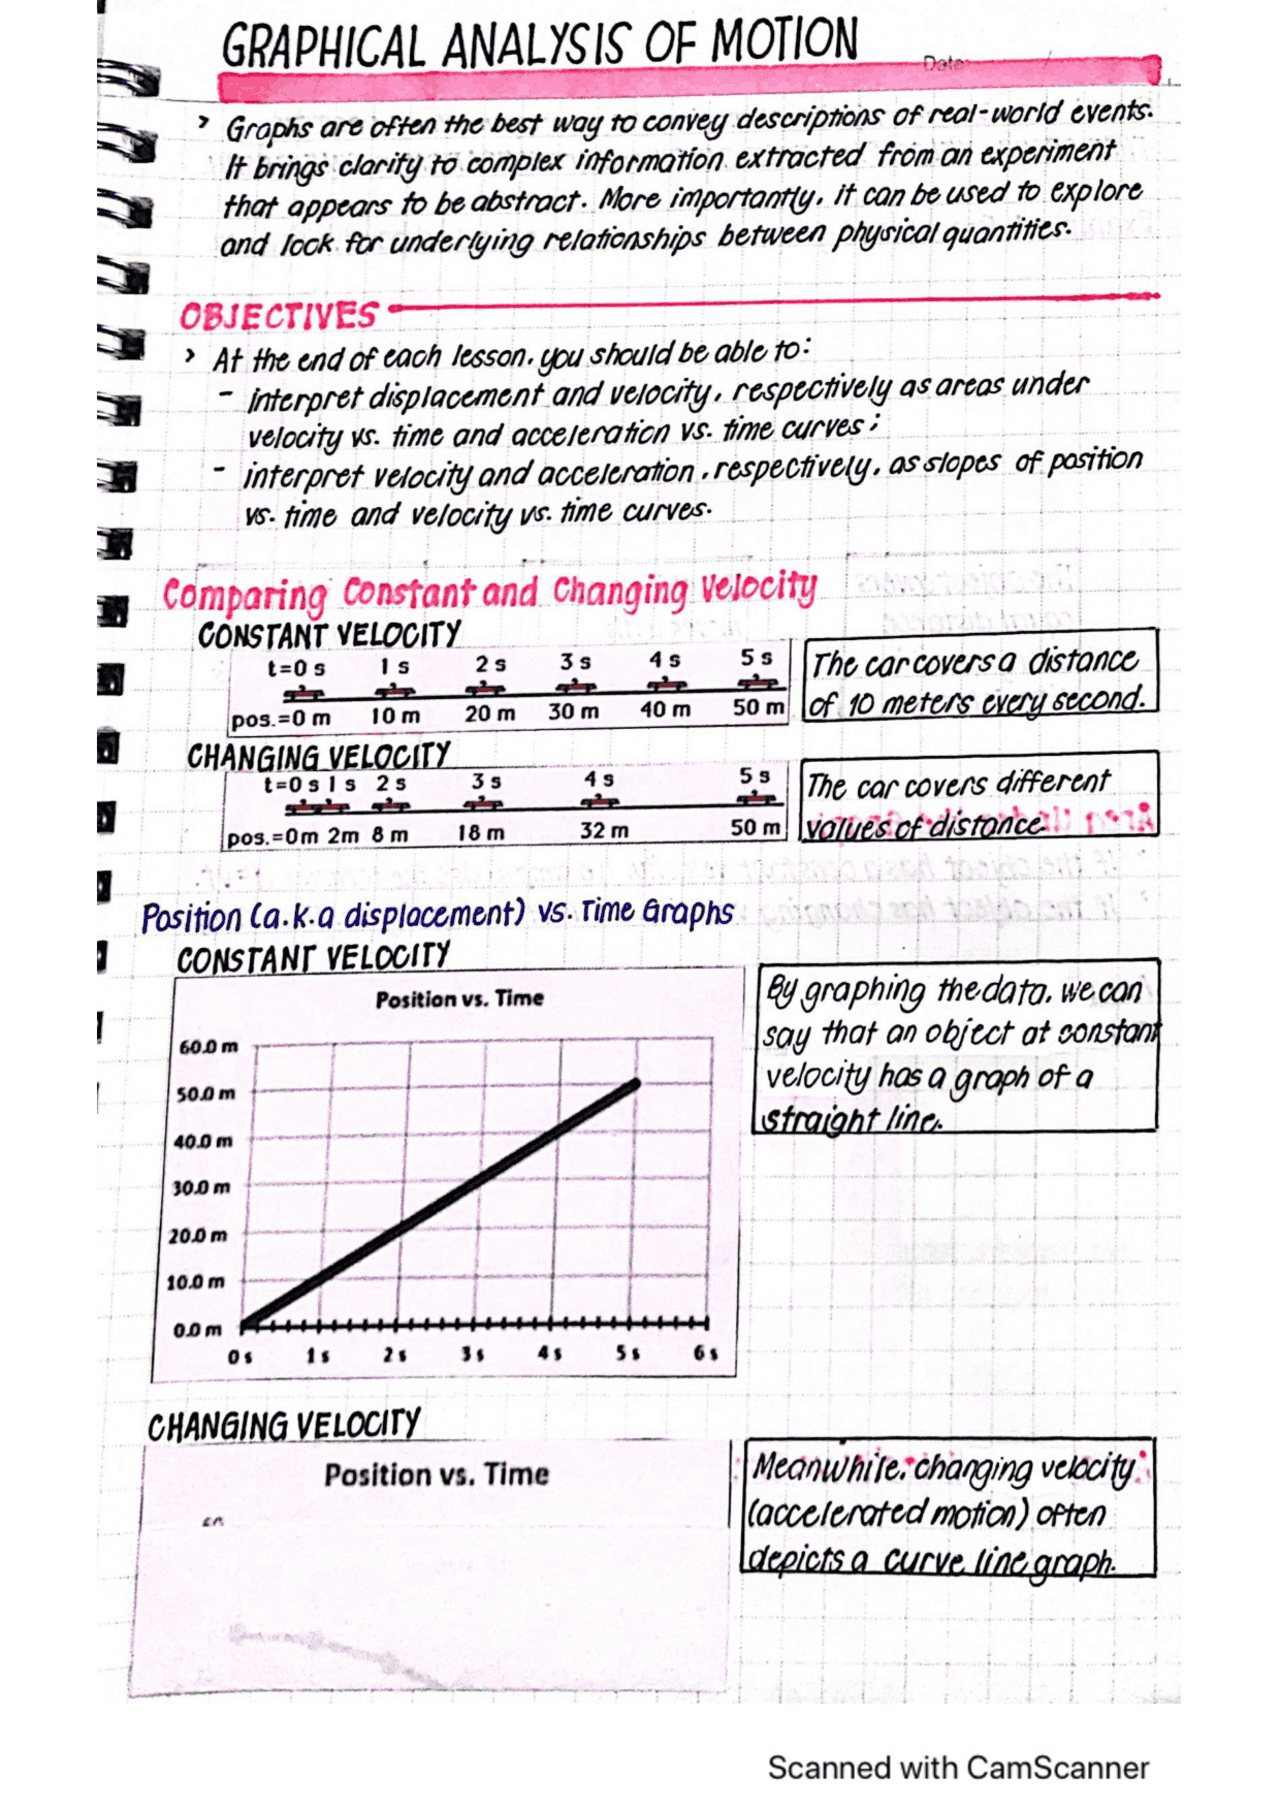 GRAPHICAL ANALYSIS OF MOTION
Date:
> Graphs are often the best way to convey descriptions of real-world events.
It brings clarity to complex information extracted from an experiment
that appears to be abstract. More importantly, it can be used to explore
and look for underlying relationships between physical quantities.
OBJECTIVES
> At the end of each lesson, you should be able to:
- interpret displacement and velocity, respectively as areas under
velocity vs. time and acceleration vs. time curves;
- interpret velocity and acceleration, respectively, as slopes of position
vs. time and velocity vs. time curves.
Comparing Constant and Changing Velocity
CONSTANT VELOCITY
t=0 s 1 s 2 s 3 s 4 s 5 s
pos.=0 m 10 m 20 m 30 m 40 m 50 m
The car covers a distance
of 10 meters every second.
CHANGING VELOCITY
t=0 s 1 s 2 s 3 s 4 s 5 s
pos.=0m 2m 8 m 18 m 32 m 50 m
The car covers different
values of distance.
Position (a.k.a displacement) vs. Time Graphs
CONSTANT VELOCITY
Position vs. Time
60.0 m
50.0 m
40.0 m
30.0 m
20.0 m
10.0 m
0.0 m
0 s 1 s 2 s 3 s 4 s 5 s 6 s
By graphing the data, we can
say that an object at constant
velocity has a graph of a
straight line.
CHANGING VELOCITY
Position vs. Time
Meanwhile, changing velocity
(accelerated motion) often
depicts a curve line graph.
Scanned with CamScanner